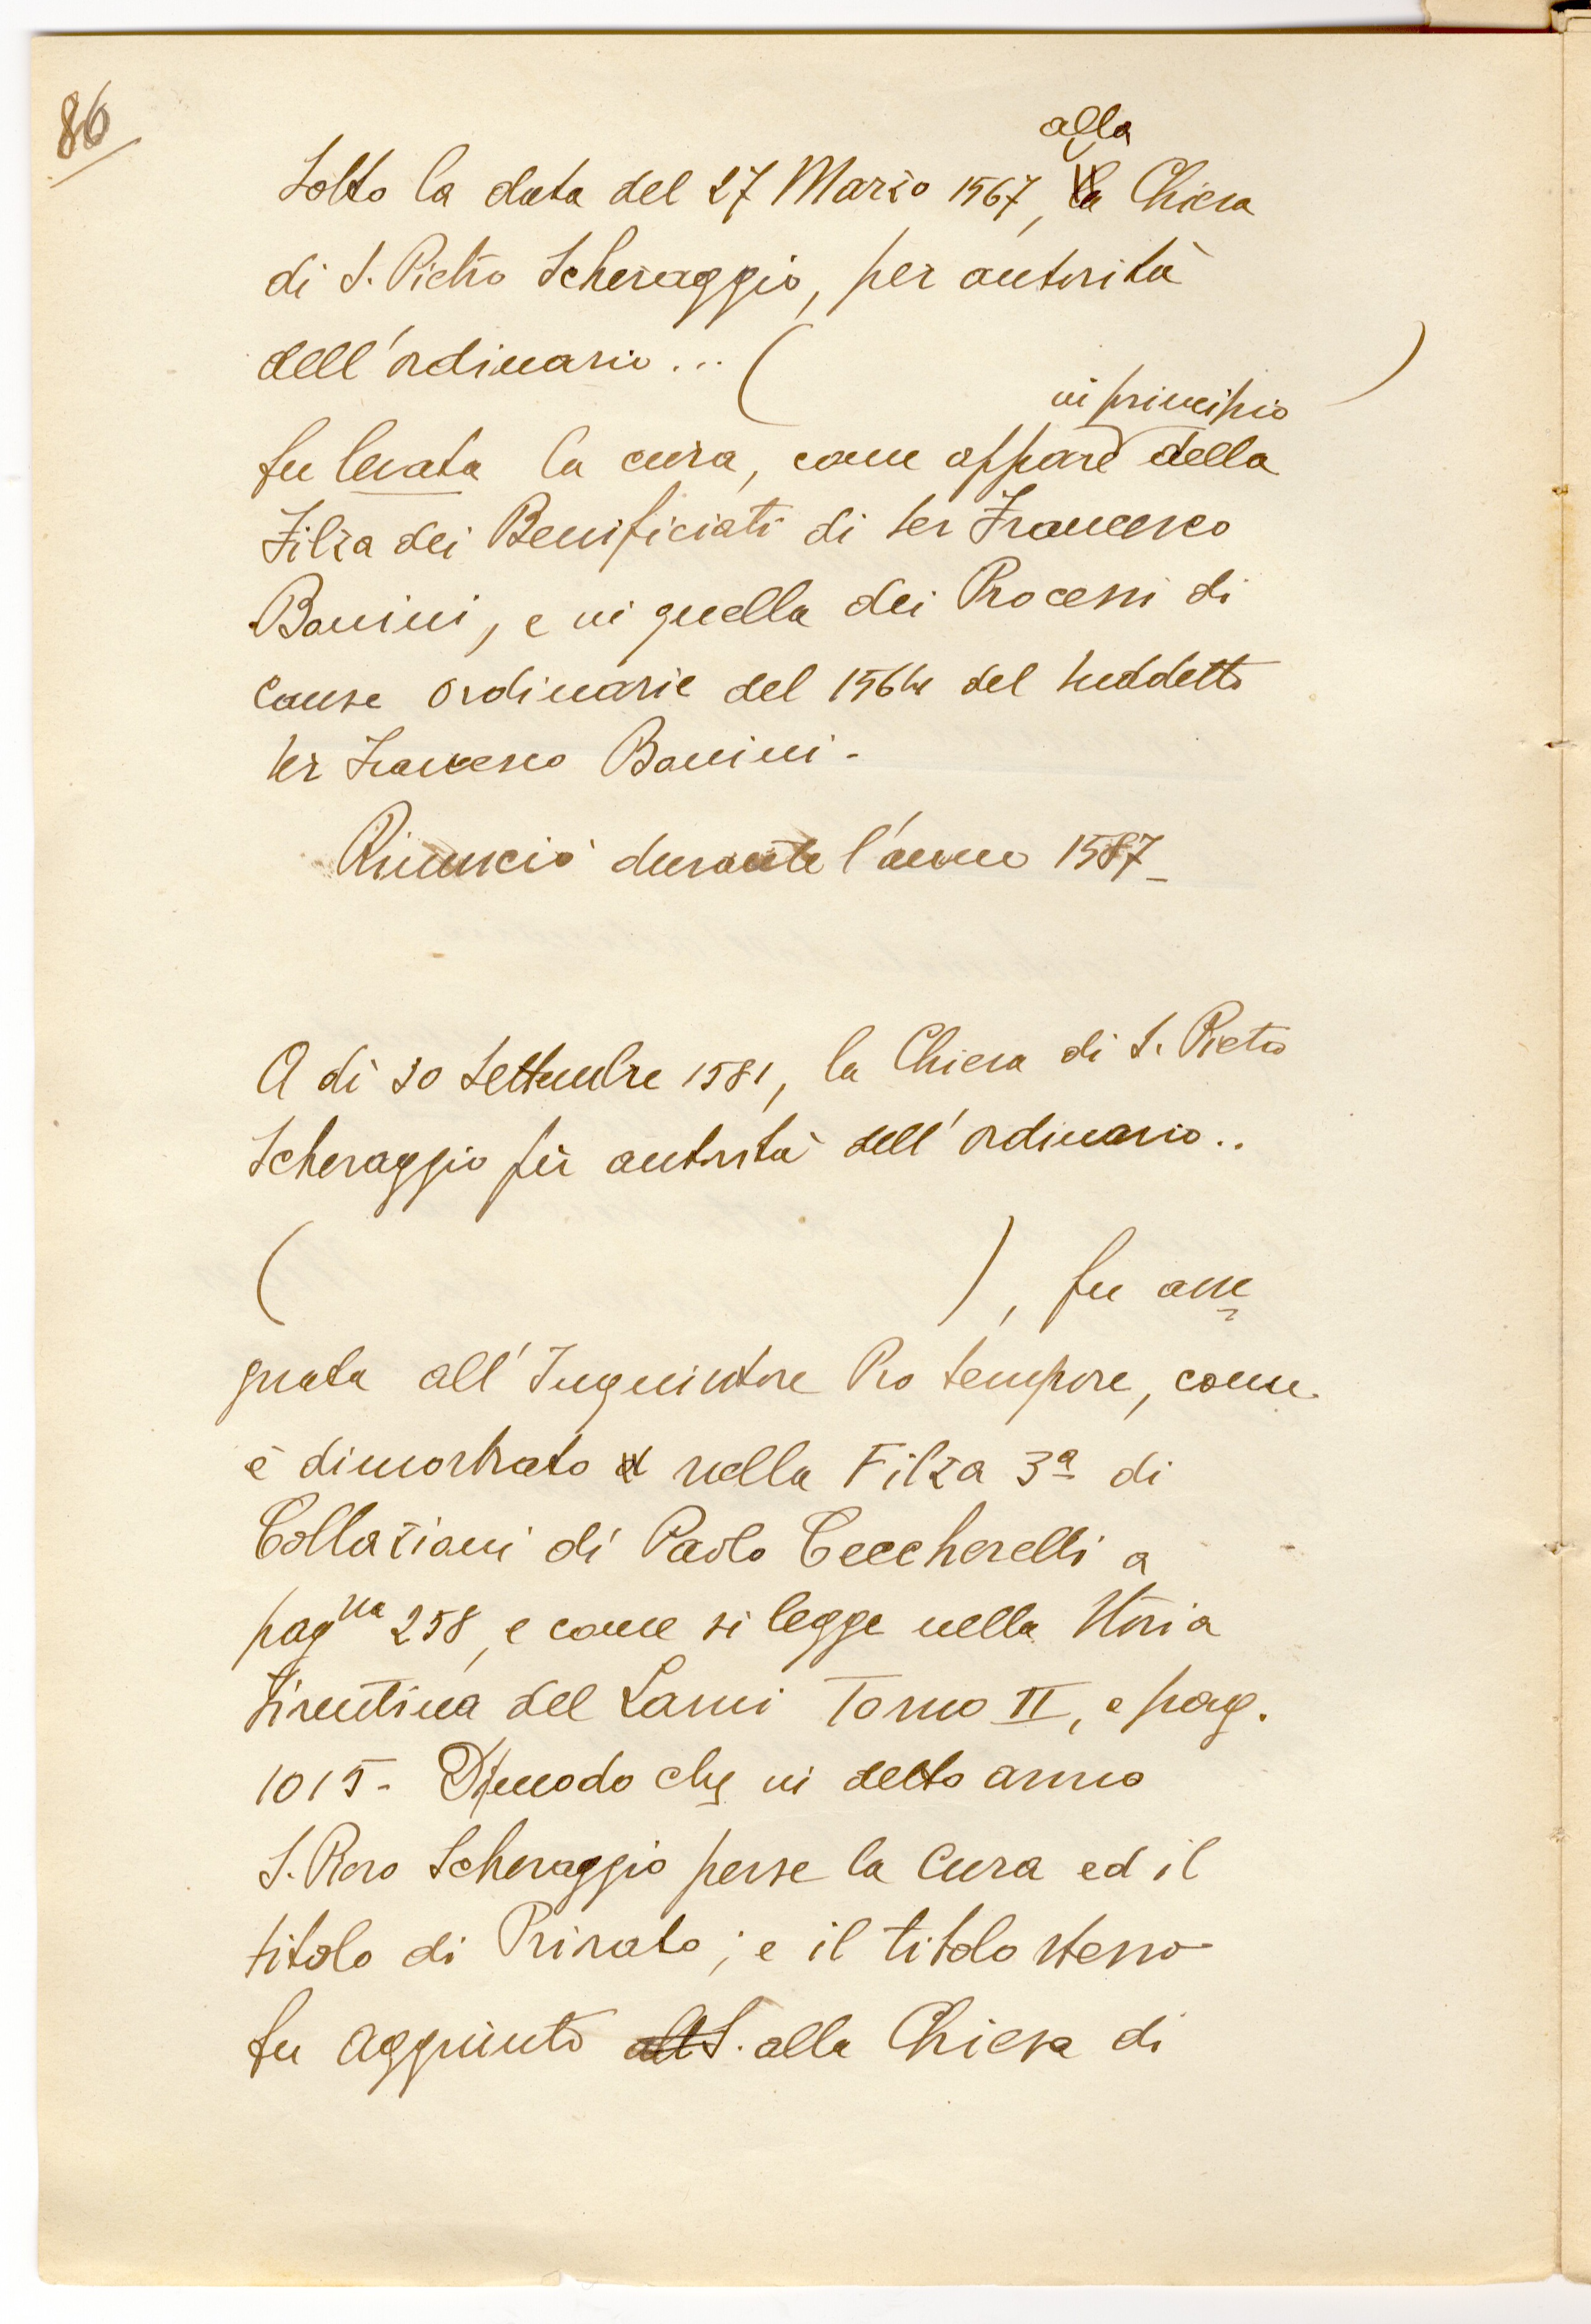 86
alla
Sotto la data del 27 Marzo 1567, la Chiesa
di S. Pietro Scheraggio, per autorità
dell'ordinario... ( )
in principio
fu levata la cura, come appare della
Filza dei Benificiati di ser Francesco
Banini, e in quella dei Processi di
cause ordinarie del 1564 del suddetto
ser Francesco Banini -
Rinunciò durante l'anno 1587 -
A dì 30 Settembre 1581, la Chiesa di S. Pietro
Scheraggio per autorità dell'ordinario..
( ), fu asse
gnata all'Inquisitore Pro tempore, come
è dimostrato nella Filza 3ª di
Collazioni di Paolo Ceccherelli a
pagna 258, e come si legge nella Storia
Firentina del Lami Tomo II, a pag.
1015 - Dimodo che in detto anno
S. Piero Scheraggio perse la cura ed il
titolo di Priorato; e il titolo stesso
fu aggiunto al S. alla Chiesa di